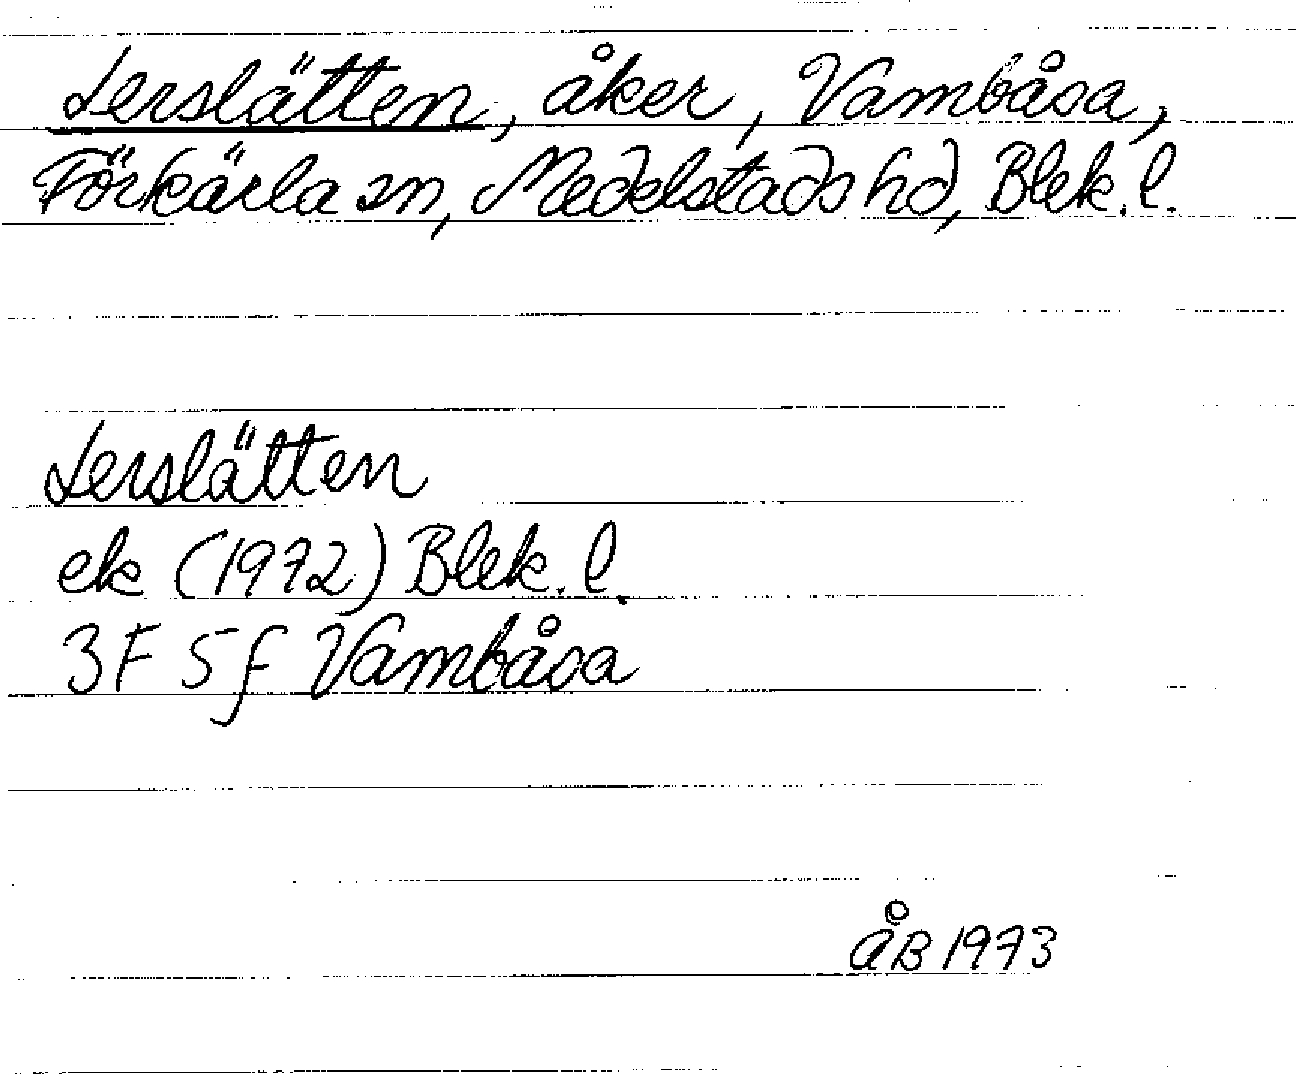 Lerslätten, åker, Vambåsa,
Förkärla sn, Medelstads hd, Blek. l.
Lerslätten
ek (1972) Blek. l.
3F 5f Vambåsa
ÅB 1973